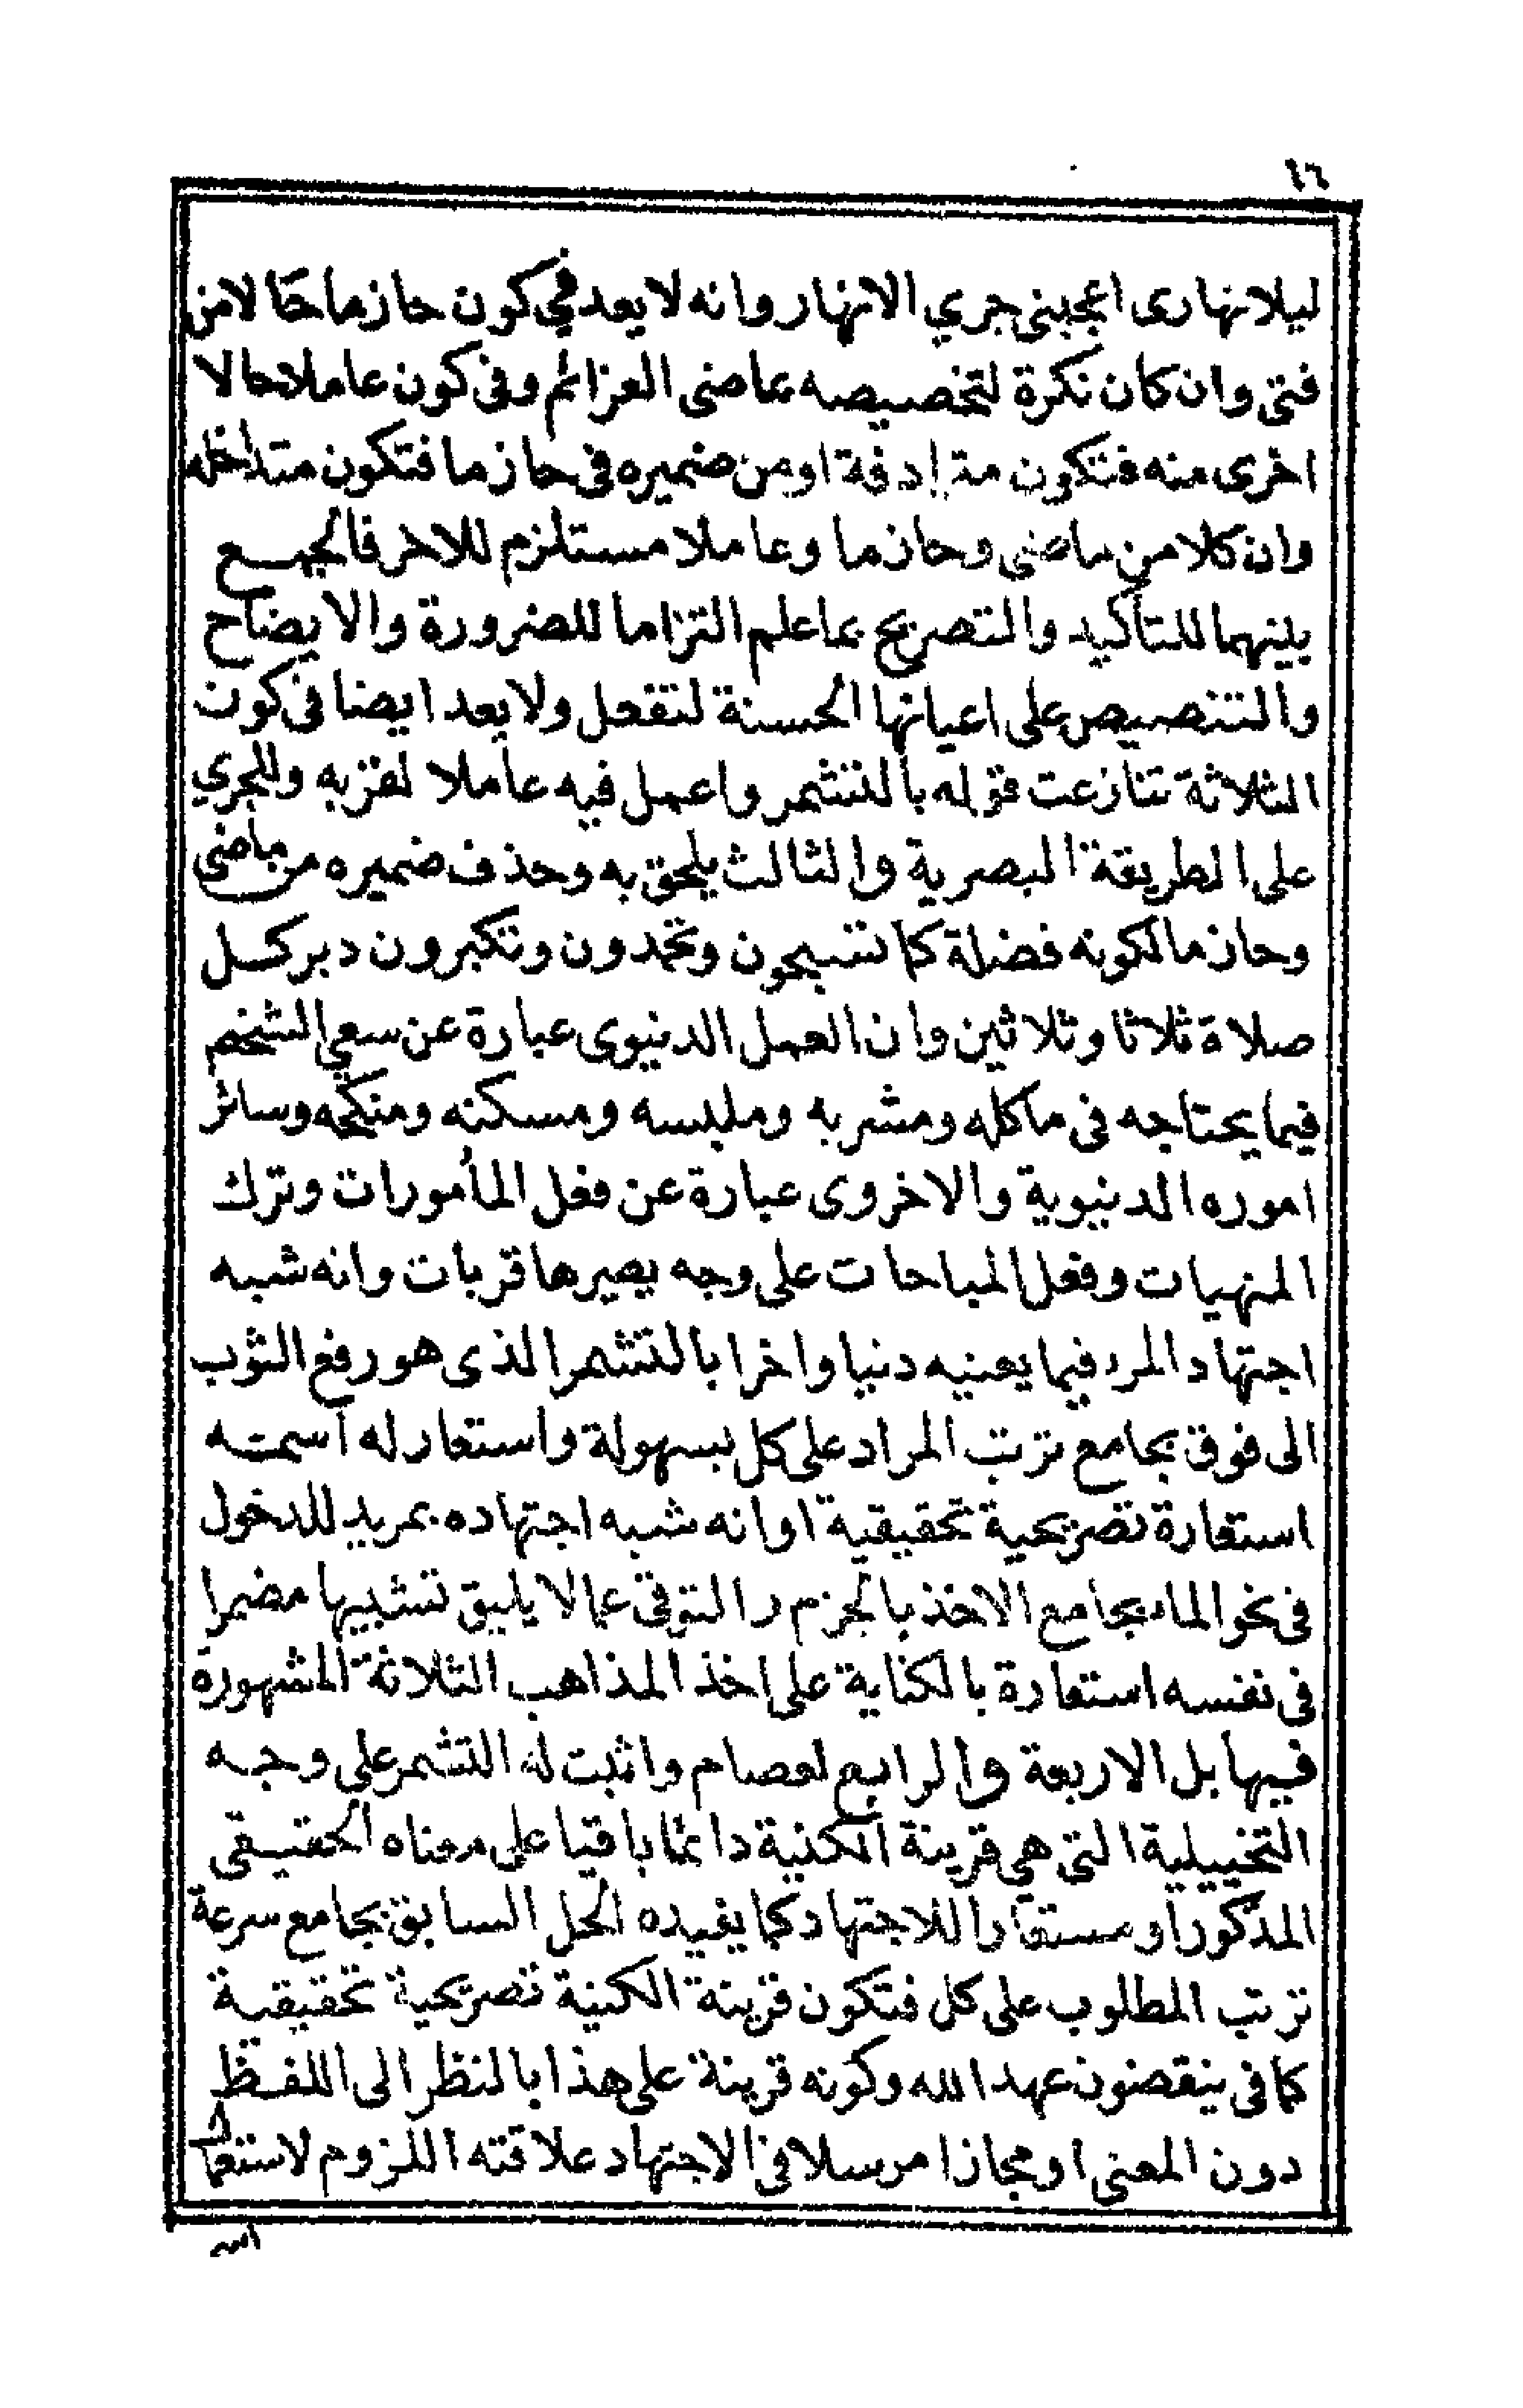 ١٦
ليلانهارى اعجبنى جري الانهار وانه لا يعد في كون حازما حالا من
فتى وان كان نكرة لتخصيصه بماضى العزائم وفى كون عاملا حالا
اخرى منه فتكون مترادفة او من ضميره فى حازما فتكون متداخلة
وان كلا من ماضى وحازما وعاملا مستلزم للاخر فالجمع
بينهما للتأكيد والتصريح بما علم التزاما للضرورة والايضاح
والتنصيص على اعيانها الحسنة لتفعل ولا يعد ايضا فى كون
الثلاثة تنازعت قوله بالتشمر واعمل فيه عاملا لقربه وللجري
على الطريقة البصرية والثالث يلحق به وحذف ضميره من ماضى
وحازما لكونه فضلة كما تسبحون وتحمدون وتكبرون دبر كل
صلاة ثلاثا وثلاثين وان العمل الدنيوى عبارة عن سعي الشخص
فيما يحتاجه فى ماكله ومشربه وملبسه ومسكنه ومنكحه وسائر
اموره الدنيوية والاخروى عبارة عن فعل المأمورات وترك
المنهيات وفعل المباحات على وجه يصيرها قربات وانه شبه
اجتهاد المرء فيما يعنيه دنيا واخرا بالتشمر الذى هو رفع الثوب
الى فوق بجامع ترتب المراد على كل بسهولة واستعار له اسمه
استعارة تصريحية تحقيقية او انه شبه اجتهاده بمريد للدخول
فى نحو الماء بجامع الاخذ بالجزم والتوقى عما لا يليق تشبيها مضمرا
فى نفسه استعارة بالكناية على اخذ المذاهب الثلاثة المشهورة
فيها بل الاربعة والرابع لعصام واثبت له التشمر على وجه
التخييلية التى هي قرينة المكنية دائما باقيا على معناه الحقيقى
المذكور او مستعارا للاجتهاد كما يفيده الحل السابق بجامع سرعة
ترتب المطلوب على كل فتكون قرينة المكنية تصريحية تحقيقية
كما فى ينقضون عهد الله وكونه قرينة على هذا بالنظر الى اللفظ
دون المعنى او مجازا مرسلا فى الاجتهاد علاقته اللزوم لاستعمال